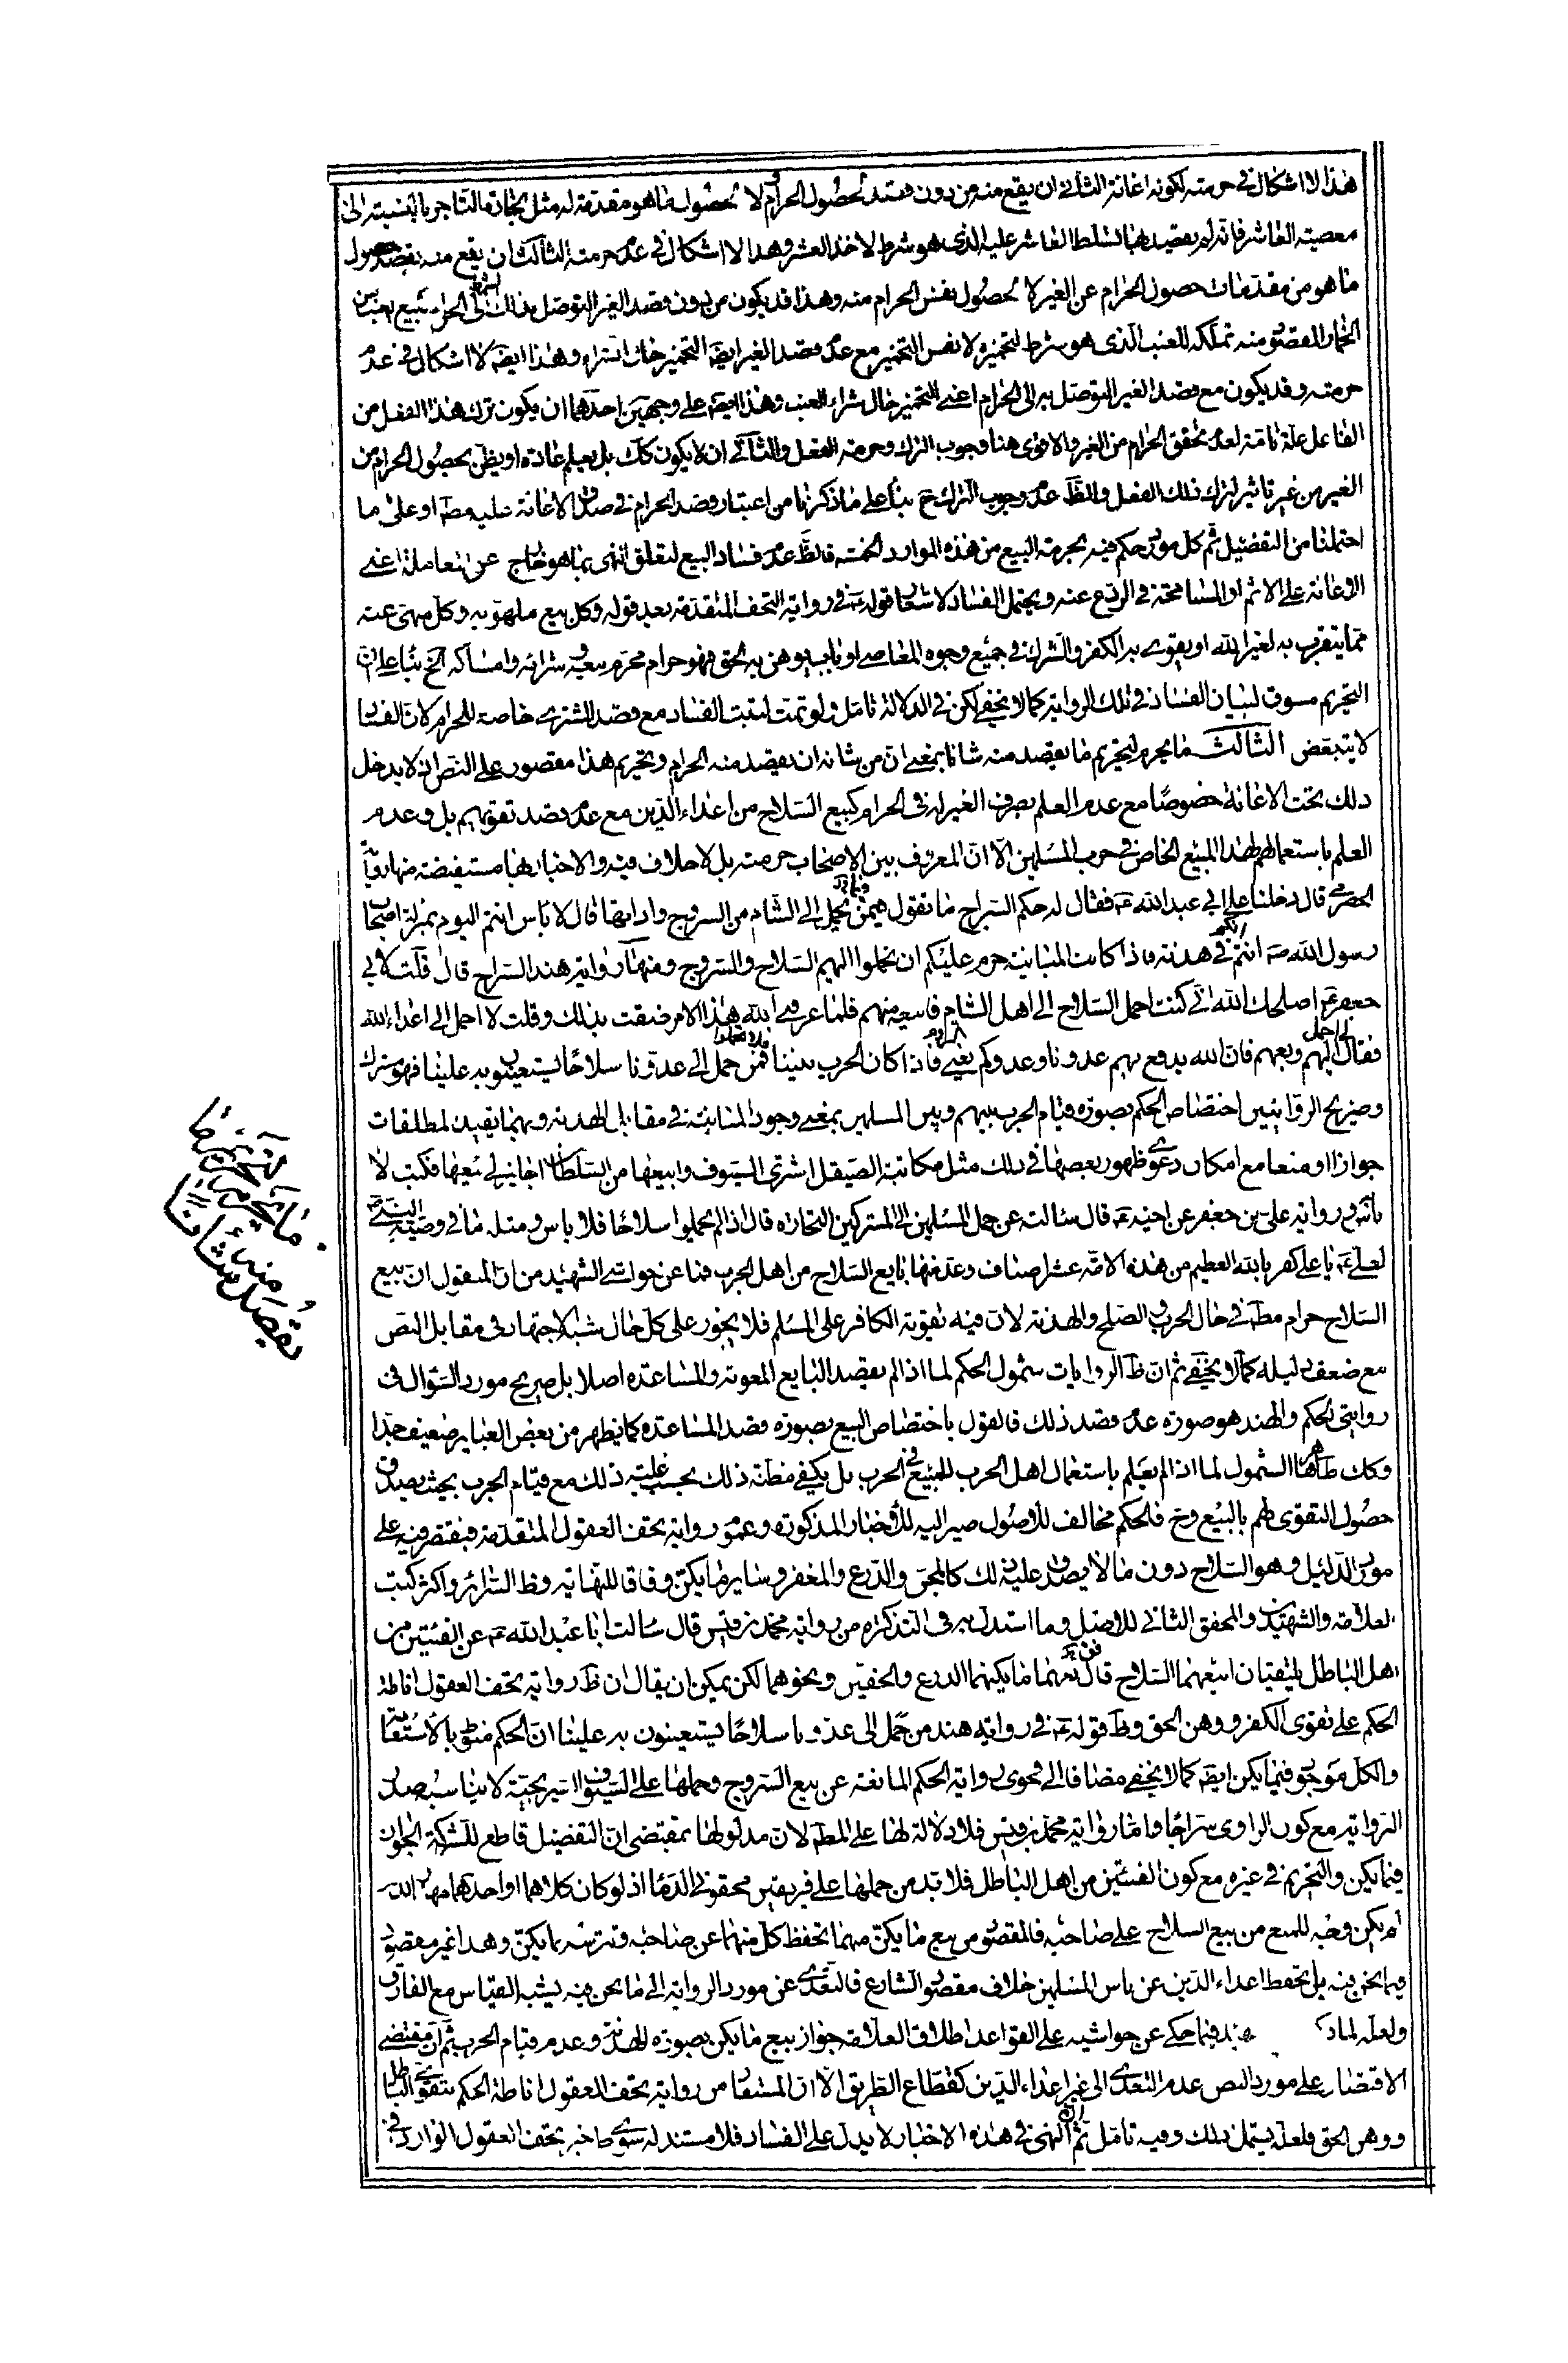 هذا لا اشكال في حرمته لكونه اعانة الثاني ان يقع منه من دون قصد لحصول الحرام و لا لحصول ما هو مقدمة له مثل تجارة التاجر بالنسبة الى
معصية العاشر فانه لم يقصد بها تسلط العاشر عليه الذى هو شرط لاخذ العشر وهذا لا اشكال في عدم حرمته الثالث ان يقع منه بقصد حصول
ما هو من مقدمات حصول الحرام عن الغير لا لحصول نفس الحرام منه وهذا قد يكون من دون قصد الغير التوصل بذلك الشرط الى الحرام كبيع العنب من
الخمار المقصود منه تملكه للعنب الذى هو شرط لتخميره لا نفس التخمير مع عدم قصد الغير ايضا التخمير حال الشراء وهذا ايضا لا اشكال في عدم
حرمته وقد يكون مع قصد الغير التوصل به الى الحرام اعنى التخمير حال شراء العنب وهذا ايضا على وجهين احدهما ان يكون ترك هذا الفعل من
الفاعل علة تامة لعدم تحقق الحرام من الغير والاقوى هنا وجوب الترك وحرمة الفعل والثاني ان لا يكون كك بل يعلم عادة او يظن بحصول الحرام من
الغير من غير تاثير لترك ذلك الفعل والظ عدم وجوب الترك ح بناء على ما ذكرنا من اعتبار قصد الحرام في صدق الاعانة عليه مط او على ما
احتملنا من التفصيل ثم كل مورد حكم فيه بحرمة البيع من هذه الموارد الخمسة فالظ عدم فساد البيع لتعلق النهى بما هو خارج عن المعاملة اعنى
الاعانة على الاثم او المسامحة في الردع عنه ويحتمل الفساد لاشعار قوله ع في رواية التحف المتقدمة بعد قوله وكل بيع ملهو به وكل منهى عنه
مما يتقرب به لغير الله او يقوى به الكفر والشرك في جميع وجوه المعاصى او باب يوهن به الحق فهو حرام محرم بيعه و شرائه وامساكه الخ بناء على ان
التحريم مسوق لبيان الفساد في تلك الرواية كما لا يخفى لكن في الدلالة تامل ولو تمت لثبت الفساد مع قصد المشترى خاصة للحرام لان الفساد
لا يتبعض الثالث ما يحرم لتحريم ما يقصد منه شانا بمعنى ان من شانه ان يقصد منه الحرام وتحريم هذا مقصور على النص اذ لا يدخل
ذلك تحت الاعانة خصوصا مع عدم العلم بصرف الغير له في الحرام كبيع السلاح من اعداء الدين مع عدم قصد تقويهم بل وعدم
العلم باستعمالهم لهذا المبيع الخاص في حرب المسلمين الا ان المعروف بين الاصحاب حرمته بل لا خلاف فيه والاخبار بها مستفيضة منها رواية
الحضرمى قال دخلنا على ابي عبد الله ع فقال له حكم السراج ما تقول فيمن يحمل الى الشام من السروج واداتها قال لا باس انتم اليوم بمنزلة اصحاب
رسول الله ص انكم في هدنة فاذا كانت المباينة حرم عليكم ان تحملوا اليهم السلاح والسروج ومنها رواية هند السراج قال قلت لابى
جعفر ع اصلحك الله انى كنت احمل السلاح الى اهل الشام فابيعه منهم فلما عرفنى الله هذا الامر ضقت بذلك وقلت لا احمل الى اعداء الله
فقال لي احمل اليهم وبعهم فان الله يدفع بهم عدونا وعدوكم يعنى الروم فاذا كان الحرب بيننا فلا تحملوا فمن حمل الى عدونا سلاحا يستعينون به علينا فهو مشرك
وصريح الروايتين اختصاص الحكم بصورة قيام الحرب بينهم وبين المسلمين بمعنى وجود المباينة في مقابل الهدنة وبهما يقيد المطلقات
جوازا ومنعا مع امكان دعوى ظهور بعضها في ذلك مثل مكاتبة الصيقل اشترى السيوف وابيعها من السلطان اجائز لى بيعها فكتب لا
باس به ورواية على بن جعفر عن اخيه ع قال سالته عن حمل المسلمين الى المشركين التجارة قال اذا لم يحملوا سلاحا فلا باس ومثله ما في وصية النبي ص
لعلى ع يا على كفر بالله العظيم من هذه الامة عشرة اصناف وعد منها بايع السلاح من اهل الحرب فما عن حواشى الشهيد من ان المنقول ان بيع
السلاح حرام مط في حال الحرب و الصلح والهدنة لان فيه تقوية الكافر على المسلم فلا يجوز على كل حال شبه الاجتهاد في مقابل النص
مع ضعف دليله كما لا يخفى ثم ان ظ الروايات شمول الحكم لما اذا لم يقصد البايع المعونة والمساعدة اصلا بل صريح مورد السؤال في
روايتى الحكم والهند هو صورة عدم قصد ذلك فالقول باختصاص البيع بصورة قصد المساعدة كما يظهر من بعض العبائر ضعيف جدا
وكك ظاهرها الشمول لما اذا لم يعلم باستعمال اهل الحرب للمبيع في الحرب بل يكفى مظنة ذلك بحسب غلبة ذلك مع قيام الحرب بحيث يصدق
حصول التقوى لهم بالبيع وح فالحكم مخالف للاصول صير اليه للاخبار المذكورة وعموم رواية تحف العقول المتقدمة فيقتصر فيه على
مورد الدليل وهو السلاح دون ما لا يصدق عليه ذلك كالمجن والدرع والمغفر وساير ما يكن وفاقا للنهاية وظ السرائر واكثر كتب
العلامة والشهيدين والمحقق الثاني للاصل وما استدل به في التذكرة من رواية محمد بن قيس قال سالت ابا عبد الله ع عن الفئتين من
اهل الباطل يلتقيان ابيعهما السلاح قال بعهما ما يكنهما الدرع والخفين ونحوهما لكن يمكن ان يقال ان ظ رواية تحف العقول اناطة
الحكم على تقوى الكفر ووهن الحق وظ قوله ع في رواية هند من حمل الى عدونا سلاحا يستعينون به علينا ان الحكم منوط بالاستعانة
والكل موجود فيما يكن ايضا كما لا يخفى مضافا الى فحوى رواية الحكم المانعة عن بيع السروج وحملها على السيوف السريجية لا يناسبه صدر
الرواية مع كون الراوى سراجا واما رواية محمد بن قيس فلا دلالة لها على المط لان مدلولها بمقتضى ان التفصيل قاطع للشركة الجواز
فيما يكن والتحريم في غيره مع كون الفئتين من اهل الباطل فلا بد من حملها على فريقين محقونى الدماء اذ لو كان كلاهما او احدهما مهدور الدم
لم يكن وجه للمنع من بيع السلاح على صاحبه فالمقصود من بيع ما يكن منهما تحفظ كل منهما عن صاحبه وتترسه بما يكن وهذا غير مقصود
فيما نحن فيه بل تحفظ اعداء الدين عن باس المسلمين خلاف مقصود الشارع فالتعدى عن مورد الرواية الى ما نحن فيه يشبه القياس مع الفارق
ولعله لما ذكر قيد فيما حكى عن حواشيه على القواعد اطلاق العلامة جواز بيع ما يكن بصورة الهدنة وعدم قيام الحرب ثم ان مقتضى
الاقتصار على مورد النص عدم التعدى الى غير اعداء الدين كقطاع الطريق الا ان المستفاد من رواية تحف العقول اناطة الحكم بتقوى الباطل
ووهن الحق فلعله يشمل ذلك وفيه تامل ثم ان النهى في هذه الاخبار لا يدل على الفساد فلا مستند له سوى ظاهر خبر تحف العقول الوارد في
ما يحرم لتحريم ما
يقصد منه شانا